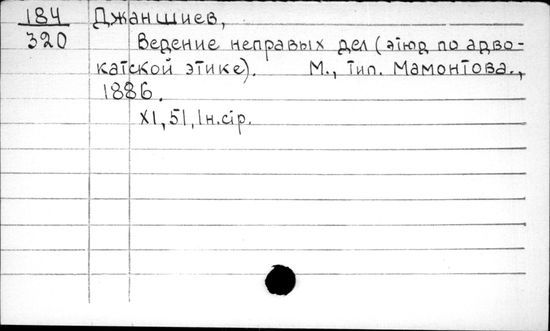 184 Джаншиев,
320 Ведение неправых дел (этюд по адво-
катской этике). М., тип. Мамонтова.,
1886.
XI, 51, 1н.стр.